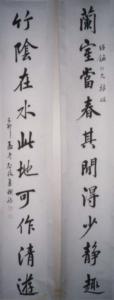 蘭室當春其閒得少靜趣
竹陰在水此地可作清遊